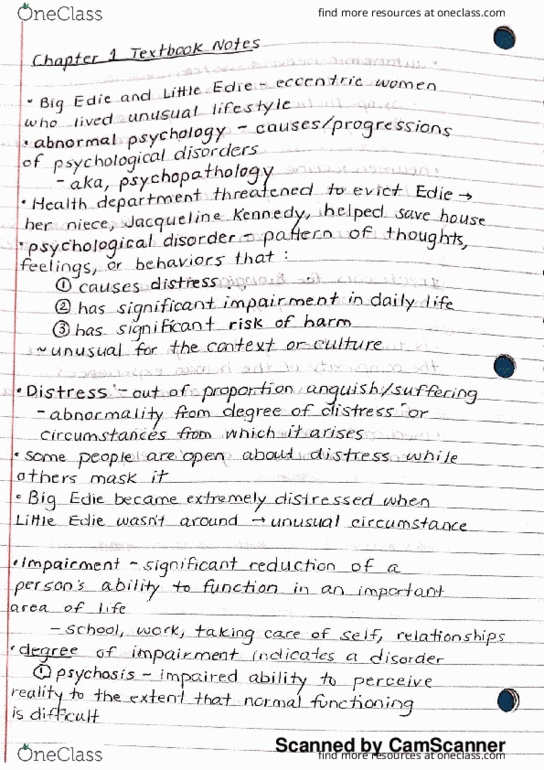 OneClass
find more resources at oneclass.com
Chapter 1 Textbook Notes
• Big Edie and Little Edie - eccentric women
who lived unusual lifestyle
• abnormal psychology - causes/progressions
of psychological disorders
- aka, psychopathology
• Health department threatened to evict Edie →
her niece, Jacqueline Kennedy, helped save house
• psychological disorder - pattern of thoughts,
feelings, or behaviors that :
① causes distress
② has significant impairment in daily life
③ has significant risk of harm
~ unusual for the context or culture
• Distress - out of proportion anguish/suffering
- abnormality from degree of distress or
circumstances from which it arises
• some people are open about distress while
others mask it
• Big Edie became extremely distressed when
Little Edie wasn't around → unusual circumstance
• Impairment - significant reduction of a
person's ability to function in an important
area of life
- school, work, taking care of self, relationships
• degree of impairment indicates a disorder
① psychosis - impaired ability to perceive
reality to the extent that normal functioning
is difficult
Scanned by CamScanner
OneClass
find more resources at oneclass.com